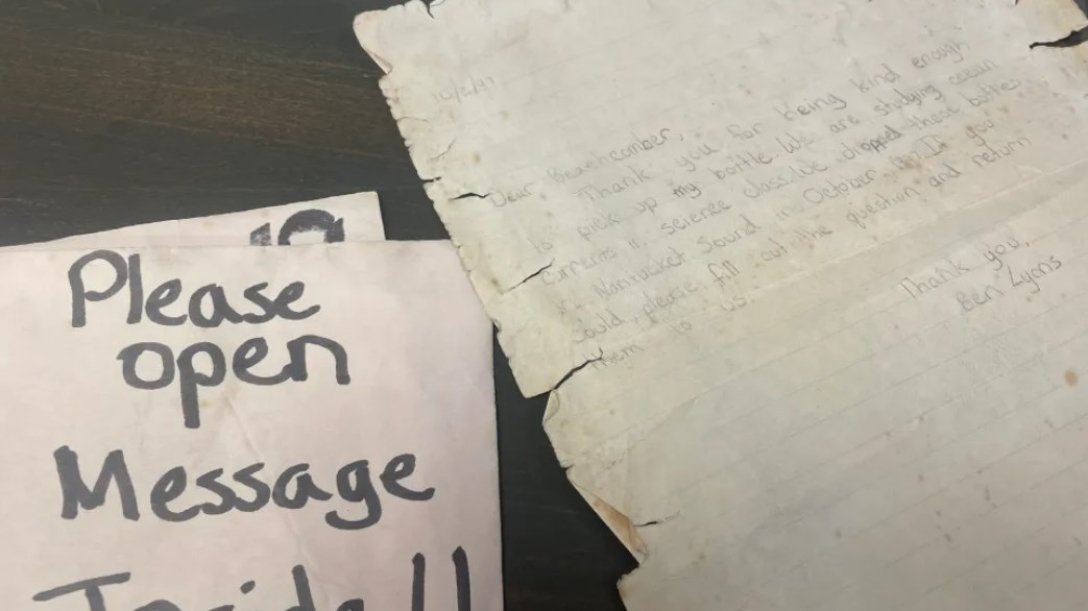 Please
open
Message
Inside!!
Dear Beachcomber,
Thank you for being kind enough
to pick up my bottle. We are studying ocean
currents in science class. We dropped these bottles
in Nantucket Sound in October 97. If you
could please fill out the question and return
them to us.
Thank you,
Ben Lyons